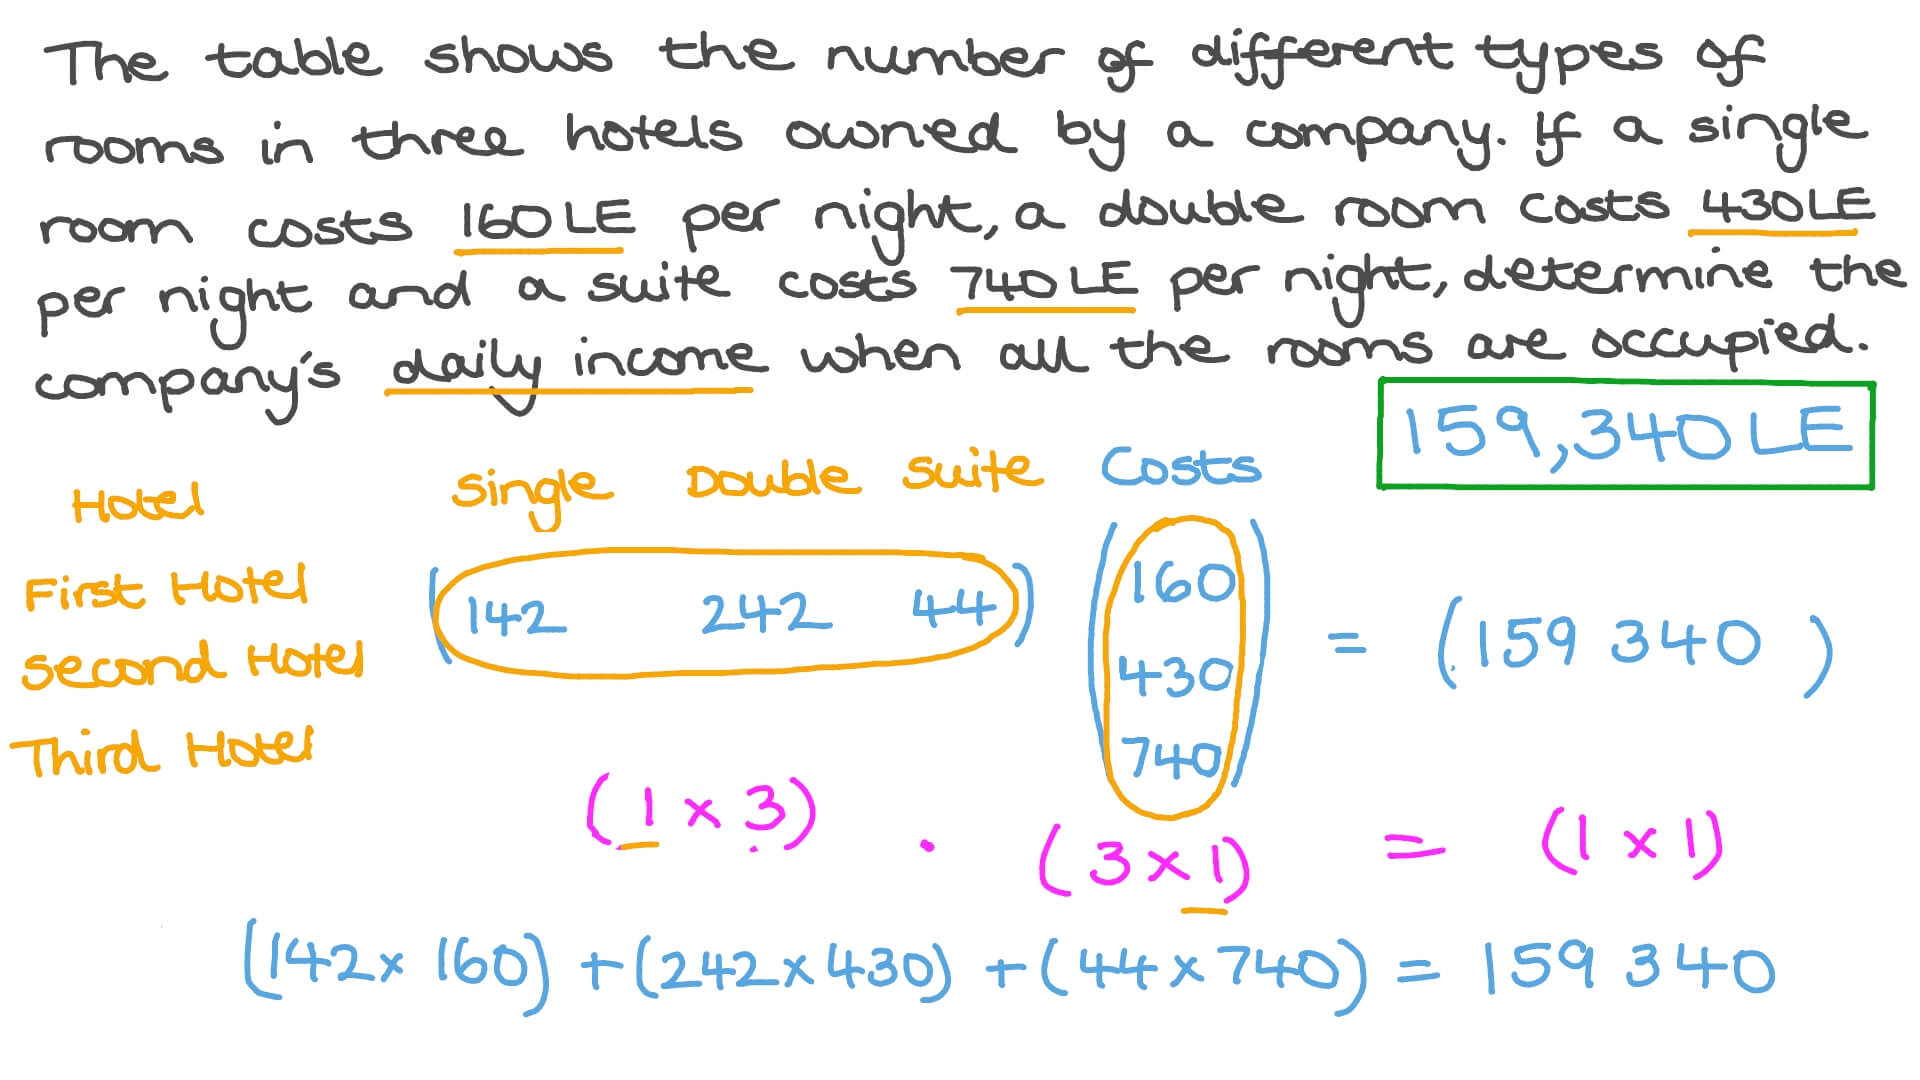 The table shows the number of different types of
rooms in three hotels owned by a company. If a single
room costs 160LE per night, a double room costs 430LE
per night and a suite costs 740LE per night, determine the
company's daily income when all the rooms are occupied.
159,340LE
Hotel Single Double Suite Costs
First Hotel
Second Hotel
Third Hotel
(142 242 44) (160
430
740) = (159 340)
(1 × 3) · (3 × 1) = (1 × 1)
(142 × 160) + (242 × 430) + (44 × 740) = 159 340